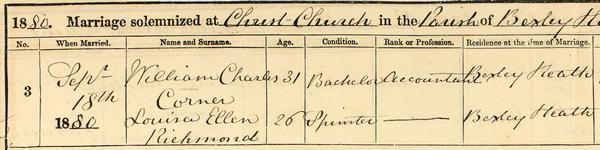 1880. Marriage solemnized at Christ Church in the Parish of Bexley
No. When Married. Name and Surname. Age. Condition. Rank or Profession. Residence at the time of Marriage.
3 Sept 18th 1880
William Charles Corner 31 Bachelor Accountant Bexley Heath
Louisa Ellen Richmond 26 Spinster — Bexley Heath